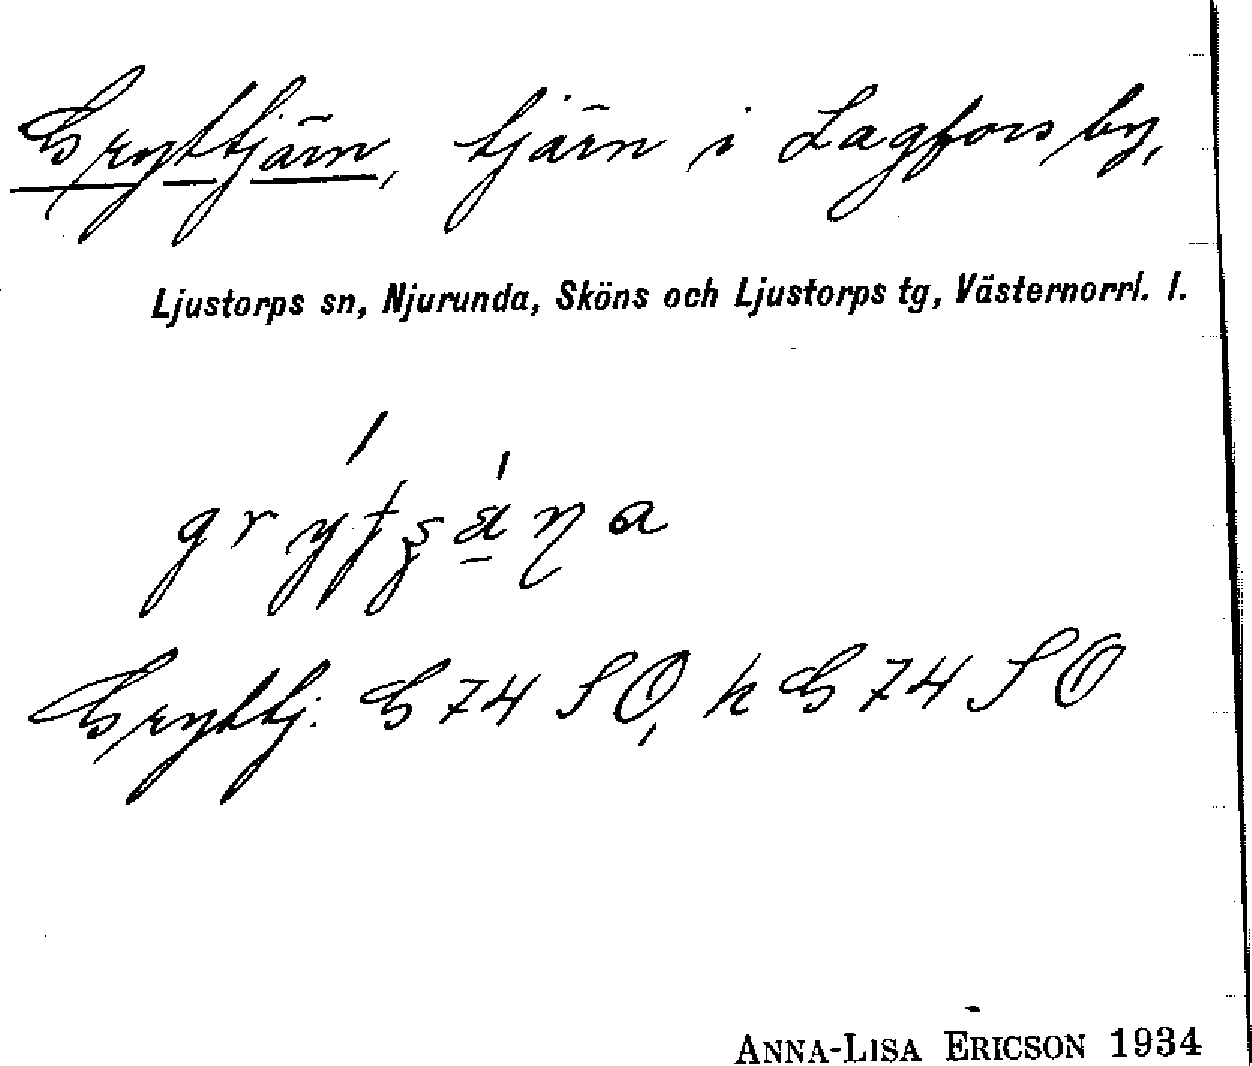 Gryttjärn, tjärn i Lagfors by,
Ljustorps sn, Njurunda, Sköns och Ljustorps tg, Västernorrl. l.
Gryttj. G 74 SO, k G 74 SO
ANNA-LISA ERICSON 1934